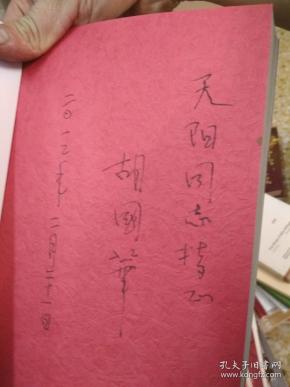 天阳同志指正
胡国华
二〇一三年二月二十一日
孔夫子旧书网